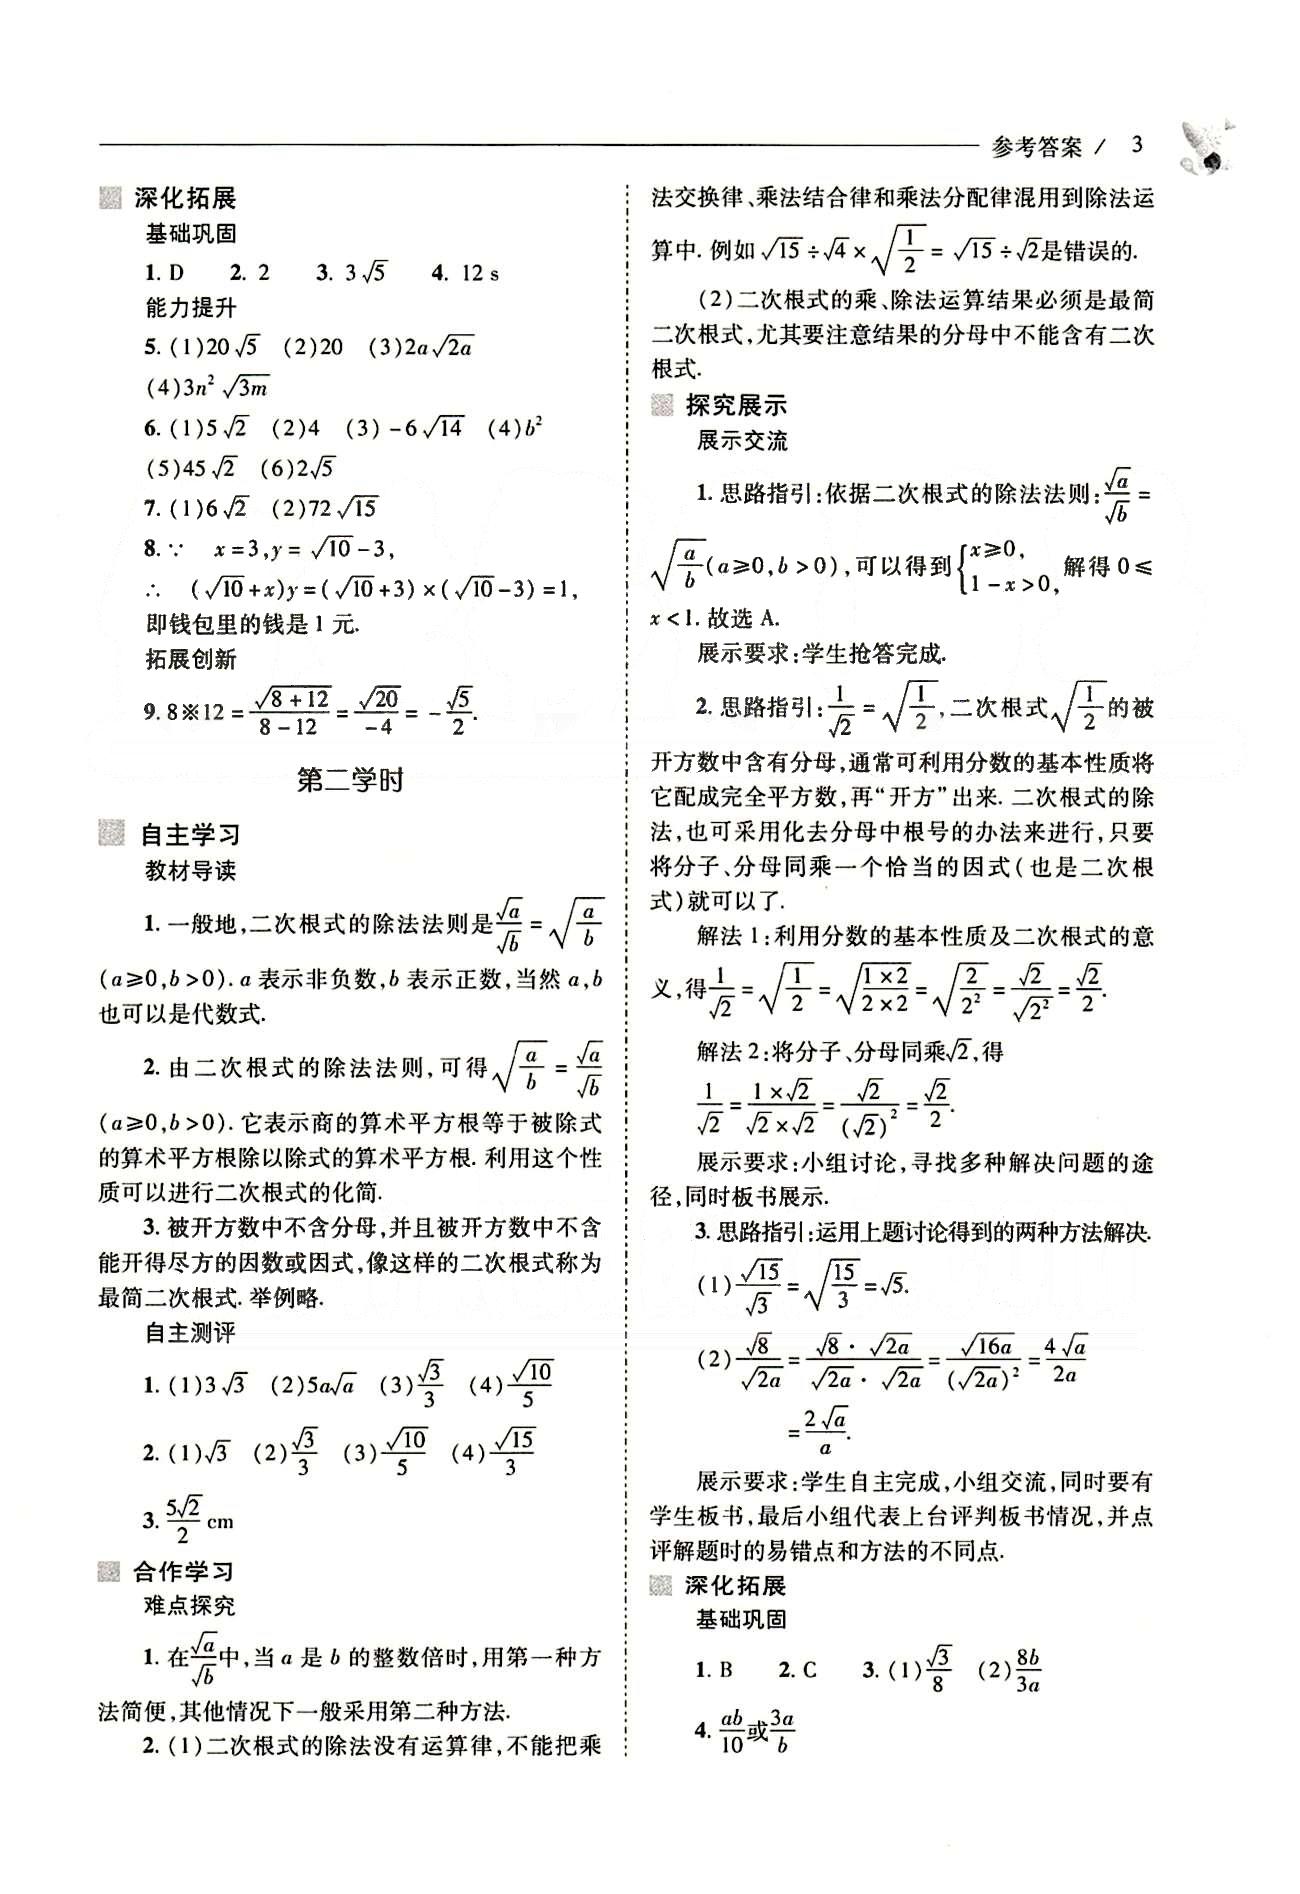 参考答案 / 3
深化拓展
基础巩固
1. D 2. 2 3. 3√5 4. 12 s
能力提升
5. (1)20√5 (2)20 (3)2a√(2a)
(4)3n²√(3m)
6. (1)5√2 (2)4 (3)-6√14 (4)b²
(5)45√2 (6)2√5
7. (1)6√2 (2)72√15
8. ∵ x=3,y=√10-3,
∴ (√10+x)y=(√10+3)×(√10-3)=1,
即钱包里的钱是1元.
拓展创新
9. 8※12=√(8+12)/(8-12)=√20/(-4)=-√5/2.
第二学时
自主学习
教材导读
1. 一般地,二次根式的除法法则是√a/√b=√(a/b)
(a≥0,b>0). a表示非负数,b表示正数,当然a,b
也可以是代数式.
2. 由二次根式的除法法则,可得√(a/b)=√a/√b
(a≥0,b>0). 它表示商的算术平方根等于被除式
的算术平方根除以除式的算术平方根. 利用这个性
质可以进行二次根式的化简.
3. 被开方数中不含分母,并且被开方数中不含
能开得尽方的因数或因式,像这样的二次根式称为
最简二次根式. 举例略.
自主测评
1. (1)3√3 (2)5a√a (3)√3/3 (4)√10/5
2. (1)√3 (2)√3/3 (3)√10/5 (4)√15/3
3. 5√2/2 cm
合作学习
难点探究
1. 在√a/√b中,当a是b的整数倍时,用第一种方
法简便,其他情况下一般采用第二种方法.
2. (1)二次根式的除法没有运算律,不能把乘
法交换律、乘法结合律和乘法分配律混用到除法运
算中. 例如√15÷√4×√(1/2)=√15÷√2是错误的.
(2)二次根式的乘、除法运算结果必须是最简
二次根式,尤其要注意结果的分母中不能含有二次
根式.
探究展示
展示交流
1. 思路指引:依据二次根式的除法法则:√a/√b=
√(a/b)(a≥0,b>0),可以得到{x≥0, 1-x>0, 解得0≤
x<1. 故选A.
展示要求:学生抢答完成.
2. 思路指引:1/√2=√(1/2),二次根式√(1/2)的被
开方数中含有分母,通常可利用分数的基本性质将
它配成完全平方数,再“开方”出来. 二次根式的除
法,也可采用化去分母中根号的办法来进行,只要
将分子、分母同乘一个恰当的因式(也是二次根
式)就可以了.
解法1:利用分数的基本性质及二次根式的意
义,得1/√2=√(1/2)=√((1×2)/(2×2))=√(2/2²)=√2/√(2²)=√2/2.
解法2:将分子、分母同乘√2,得
1/√2=(1×√2)/(√2×√2)=√2/(√2)²=√2/2.
展示要求:小组讨论,寻找多种解决问题的途
径,同时板书展示.
3. 思路指引:运用上题讨论得到的两种方法解决.
(1)√15/√3=√(15/3)=√5.
(2)√8/√(2a)=(√8·√(2a))/(√(2a)·√(2a))=√(16a)/(√(2a))²=4√a/2a
=2√a/a.
展示要求:学生自主完成,小组交流,同时要有
学生板书,最后小组代表上台评判板书情况,并点
评解题时的易错点和方法的不同点.
深化拓展
基础巩固
1. B 2. C 3. (1)√3/8 (2)8b/3a
4. ab/10或3a/b